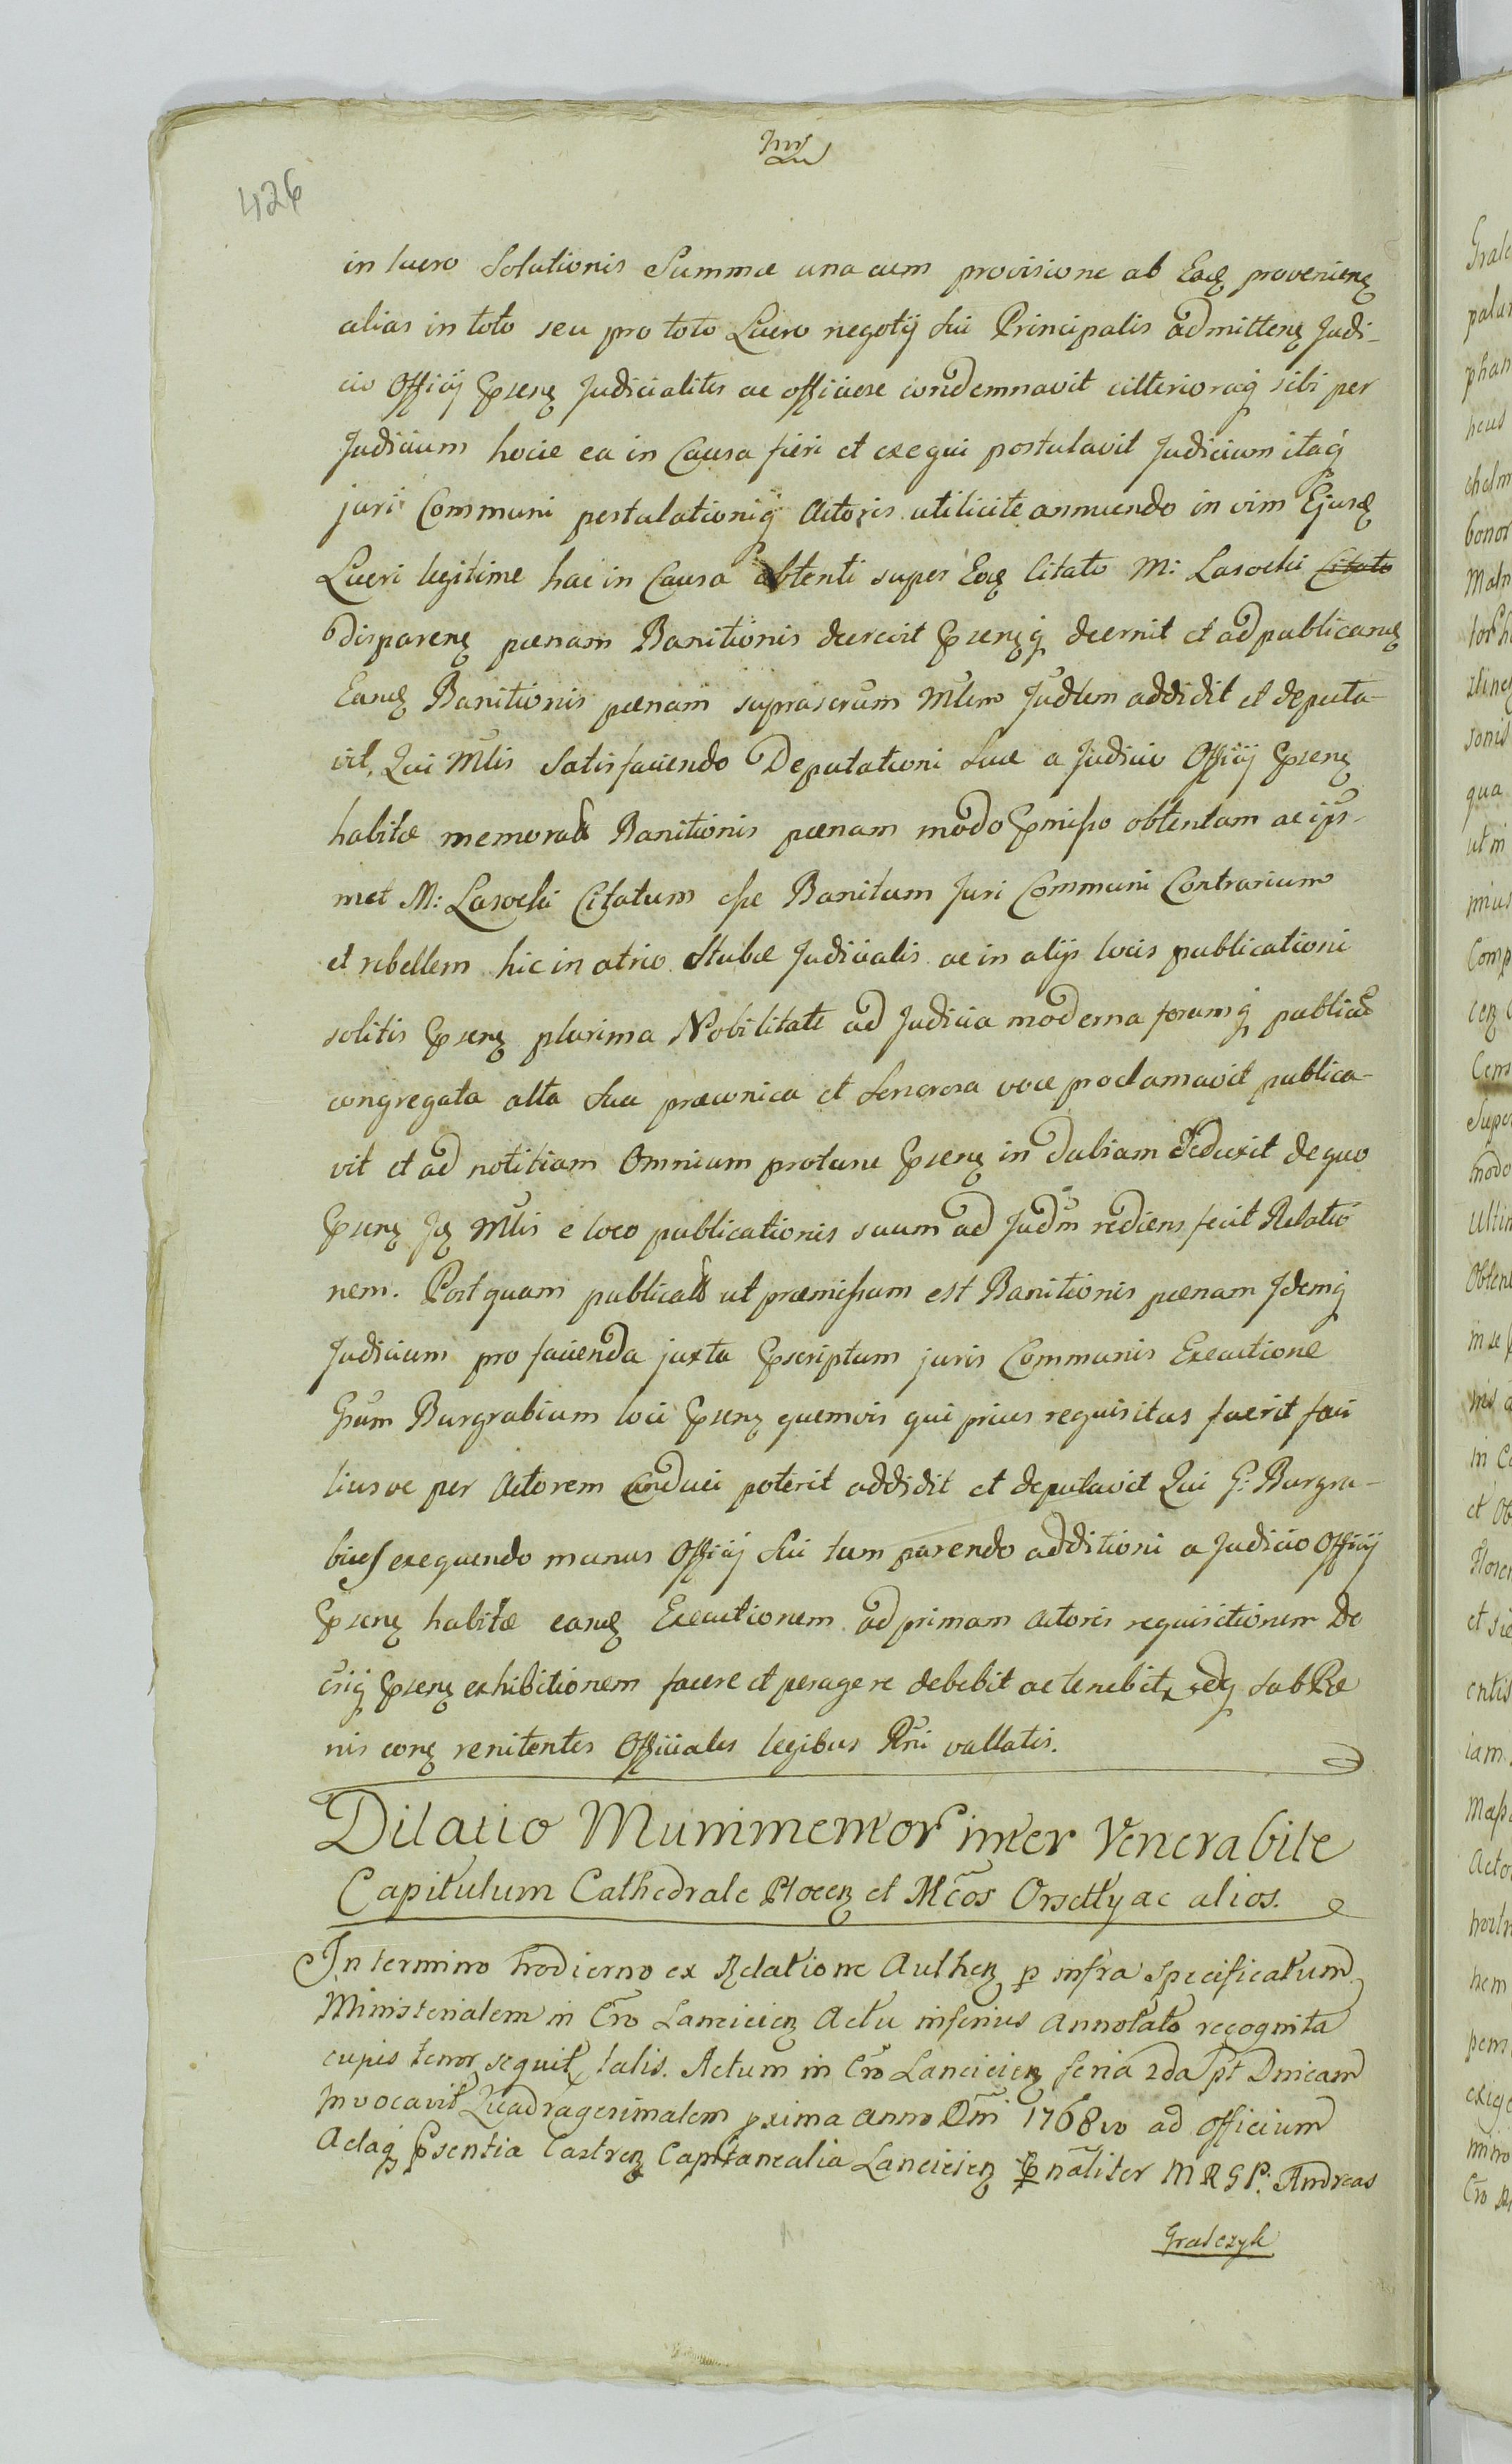 426
in lucro Solutionis Summæ una cum provisione ab Eadꝫ provenienꝫ
alias in toto seu pro toto Lucro negotij Sui Principalis admittenꝫ Judi-
cio Officij Pꝛsenꝫ Judicialiter ac officiose condemnavit ulterioraqꝫ sibi per
Judicium hocce ea in Causa fieri et exequi postulavit Judicium itaqꝫ
juri Communi postulationiqꝫ Actoris utilicite annuendo in vim Ejusdꝫ
Lucri legitime hac in Causa obtenti super Eodꝫ Citato M: Lasocki Citato
disparenꝫ pœnam Banitionis decrevit Pꝛsenꝫqꝫ decernit et ad publicandꝫ
Eandꝫ Banitionis pœnam suprascrum Mtlem Judlem addidit et deputa-
vit, Qui Mtlis Satisfaciendo Deputationi Suæ a Judicio Officij Pꝛsenꝫ
habitæ memorat Banitionis pœnam modo Pꝛmisso obtentam ac ips-
met M: Lasocki Citatum esse Banitum Juri Communi Contrarium
et rebellem hic in atrio Stubæ Judicialis ac in alijs locis publicationi
solitis Pꝛsenꝫ plurima Nobilitate ad Judicia moderna forumqꝫ public
congregata alta Sua præconica et Sonorosa voce proclamavit publica-
vit et ad notitiam Omnium protunc Pꝛsenꝫ in dubiam deduxit de quo
Pꝛsenꝫ Jꝫ Mtlis e loco publicationis suum ad Judm rediens fecit Relatio
nem. Post quam publicat ut præmissum est Banitionis pœnam Idemqꝫ
Judicium pro facienda juxta Pꝛscriptum juris Communis Executione
Gsum Burgrabium loci Pꝛsenꝫ quemvis qui prius requisitus fuerit faci
liusve per Actorem conduci poterit addidit et deputavit Qui G: Burgra-
bius exequendo munus Officij Sui tum parendo additioni a Judicio Officij
Pꝛsenꝫ habitæ eandꝫ Executionem ad primam Actoris requisitionem De
criqꝫ Pꝛsenꝫ exhibitionem facere et peragere debebit ac tenebit, sub Pœ
nis conꝫ renitentes Officiales legibus Rni vallatis.
Dilatio Munimentor inter Venerabile
Capitulum Cathedrale Plocenꝫ et Mcos Orsetty ac alios.
In termino hodierno ex Relatione Authenꝫ p infra Specificatum
Ministerialem in Cro Lancicienꝫ Actu inferius Annotato recognita
cujus tenor sequit talis. Actum in Cro Lancicienꝫ feria 2da pt Dnicam
Invocavit Quadragesimalem pxima Anno Dni 1768vo ad Officium
Actaqꝫ Pꝛsentia Castrenꝫ Capitanealia Lancicienꝫ Psnaliter MRGP. Andreas
Gralczyk